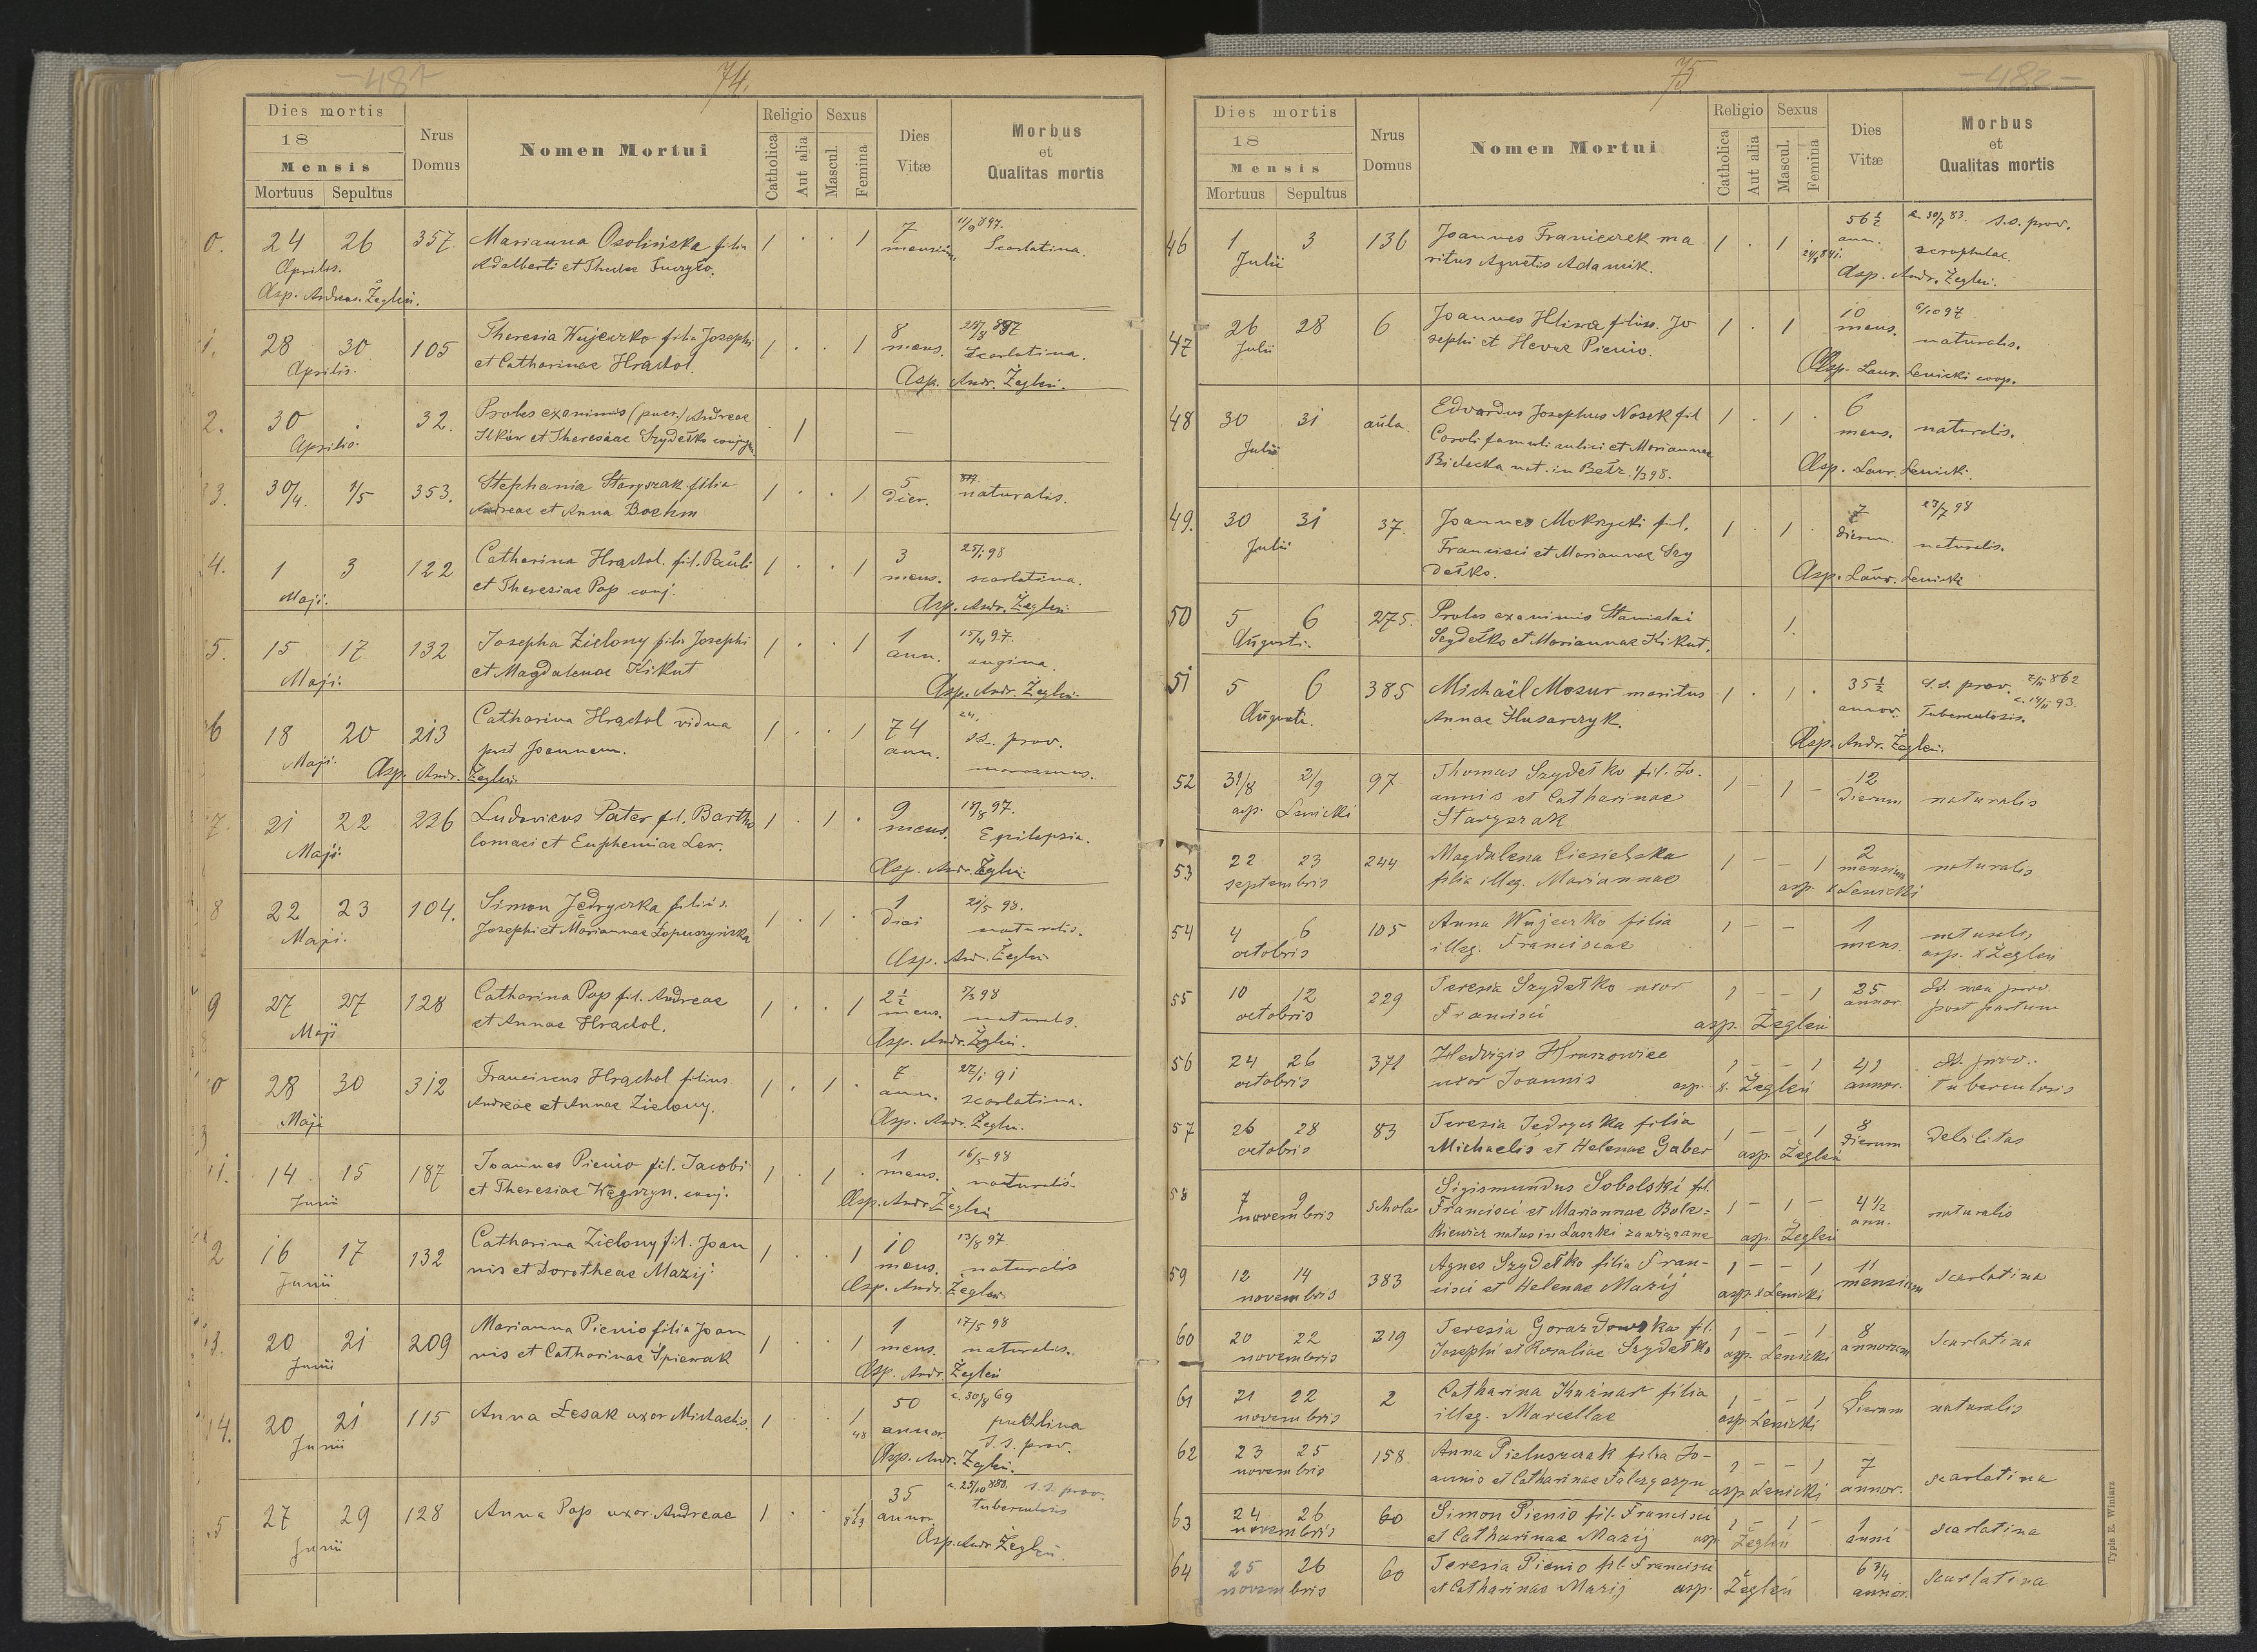 -481-
74.
Dies mortis
18
Mensis
Mortuus Sepultus
Nrus Domus
Nomen Mortui
Religio
Catholica
Aut alia
Sexus
Mascul.
Femina
Dies Vitæ
Morbus
et
Qualitas mortis
0. 24 26 357. Marianna Osolińska filia 1 . . 1 7 11/9 897.
Aprilis. Adalberti et Theclae mensium Scarlatina.
Asp. Andreas Żegleń.
1. 28 30 105 Theresia Wujeczko filia Josephi 1 . . 1 8 897
Aprilis. et Catharinae Hrądol. mens. Scarlatina.
Asp. Andr. Żegleń.
2. 30 . 32. Proles exanimis (puer.) Andreae . 1 —
Aprilis. Ilków et Theresiae Szydełko conjug
3. 30/4. 1/5 353. Stephania Staryszak filia 1 . . 1 5 naturalis.
Andreae et Anna Boehm dier.
4. 1 3 122 Catharina Hrądol. fil. Pauli 1 . . 1 3 25/1 98
Maji. et Theresiae Pop conj. mens. scarlatina.
Asp. Andr. Żegleń
5. 15 17 132 Josepha Zielony filia Josephi 1 . . 1 1 15/4 97.
Maji. et Magdalenae Kikut ann. angina.
Asp. Andr. Żegleń.
6 18 20 213 Catharina Hrądol vidua 1 . . 1 74 ss. prov.
Maji. post Joannem. ann. marasmus.
Asp. Andr. Żegleń
7. 21 22 226 Ludovicus Pater fil. Bartho 1 . 1 . 9 97.
Maji. lomaei et Euphemiae Lew. mens. Epilepsia.
Asp. Andr. Żegleń
8 22 23 104. Simon Jędryczka filius. 1 . 1 . 1 21/5 98.
Maji. Josephi et Mariannae Łopuszyńska diei naturalis.
Asp. Andr. Żegleń
9 27 27 128 Catharina Pop fil. Andreae 1 . . 1 2 1/2 5/3 98
Maji et Annae Hrądol. mens. naturalis.
Asp. Andr. Żegleń.
0 28 30 312 Franciscus Hrądol filius 1 . 1 . 7 27/1 91
Maji Andreae et Annae Zielony. ann. scarlatina.
Asp. Andr. Żegleń.
1. 14 15 187 Joannes Pienio fil. Jacobi 1 . 1 . 1 16/5 98
Junii et Theresiae Węgrzyn. conj. mens. naturalis.
Asp. Andr. Żegleń
2 16 17 132 Catharina Zielony fil. Joan 1 . . 1 10 13/8 97.
Junii nis et Dorotheae Mazij. mens. naturalis
Asp. Andr. Żegleń
3. 20 21 209 Marianna Pienio filia Joan 1 . 1 1 17/5 98
Junii nis et Catharinae Śpiewak mens. naturalis.
Asp. Andr. Żegleń
4. 20 21 115 Anna Lesak uxor Michaelis. 1 . . 1 50 c. 30/8 69
Junii 48 annor. puchlina
s.s. prov.
Asp. Andr. Żegleń.
5 27 29 128 Anna Pop uxor Andreae 1 . . 35 c. 25/10 880. s.s. prov.
Junii 863 annor. tuberculosis
Asp. Andr. Żegleń.
75
-482-
Dies mortis
18
Mensis
Mortuus Sepultus
Nrus Domus
Nomen Mortui
Religio
Catholica
Aut alia
Sexus
Mascul.
Femina
Dies Vitæ
Morbus
et
Qualitas mortis
46 1 3 136 Joannes Franiczek ma 1 . 1 . 56 1/2 c. 83. s.s. prov.
Julii ritus Agnetis Adamik. ann. scrophulae.
Asp. Andr. Żegleń.
47 26 28 6 Joannes Hliwa filius. Jo 1 . 1 10 6/10 97
Julii sephi et Hevae Pienio. mens. naturalis.
Asp. Laur. Lenicki coop.
48 30 31 aula. Edvardus Josephus Nosek fil 1 . 1 . 6
Julii Caroli famuli aulici et Mariannae mens. naturalis.
Bielecka nat. in Bełz. 1/3 98.
Asp. Laur. Lenicki.
49. 30 31 37. Joannes Mokrzycki fil. 1 . 1 . 7 23/7 98
Julii Francisci et Mariannae Szy dierum. naturalis.
dełko.
Asp. Laur. Lenicki
50 5 6 275. Proles exanimis Stanislai 1.
Augusti. Szydełko et Mariannae Kikut.
51 5 6 385 Michaël Mazur maritus 1 . 1 . 35 1/2 s.s. prov. 2/11 862
Augusti. Annae Husarczyk. annor. Tuberculosis. c. 14/11 93.
Asp. Andr. Żegleń.
52 31/8 2/9 97 Thomas Szydełko fil. Jo- 1 – 1 – 12
asp. Lenicki annis et Catharinae dierum naturalis
Staryszak
53 22 23 244 Magdalena Ciesielska 1 – – 1 2
septembris filia illeg. Mariannae mensium naturalis
asp. x Lenicki
54 4 6 105 Anna Wujeczko filia 1 – – 1 naturalis
octobris illeg. Franciscae mens. asp. x Żegleń
55 10 12 229 Teresia Szydełko uxor 1 – – 1 25 Ss. non prov.
octobris Francisci annor. post partum
asp. Żegleń
56 24 26 371 Hedvigis Hruszowiec 1 – – 1 41 Ss. prov.
octobris uxor Joannis asp. x. Żegleń annor. tuberculosis
57 26 28 83 Teresia Jedryczka filia 1 – – 1 8
octobris Michaelis et Helenae Gaber asp. Żegleń dierum debilitas
58 7 9 schola Sigismundus Sobolski fil. 1 – 1 – 4 1/2
novembris Francisci et Mariannae Bole= ann. naturalis
kiewicz natus in Laszki zawiązane asp. Żegleń
59 12 14 383 Agnes Szydełko filia Fran- 1 – – 1 11 scarlatina
novembris cisci et Helenae Mazij asp x Lenicki mensium
60 20 22 219 Teresia Gorazdowska fil. 1 – – 1 8 scarlatina
novembris Josephi et Rosaliae Szydełko asp. Lenicki annorum
61 21 22 2 Catharina Kuźniar filia 1 – – 1
novembris illeg. Marcellae asp. Lenicki dierum naturalis
62 23 25 158 Anna Pieluszczak filia Jo- 1 – – 1 7
novembris annis et Catharinae asp Lenicki annor. scarlatina
63 24 26 60 Simon Pienio fil. Francisci 1 – 1 – 1 scarlatina
novembris et Catharinae Mazij asp. Żegleń anni
64 25 26 60 Teresia Pienio fil. Francisci 6 3/4 scarlatina
novembris et Catharinae Mazij asp. Żegleń annor.
Typis E. Winiarz